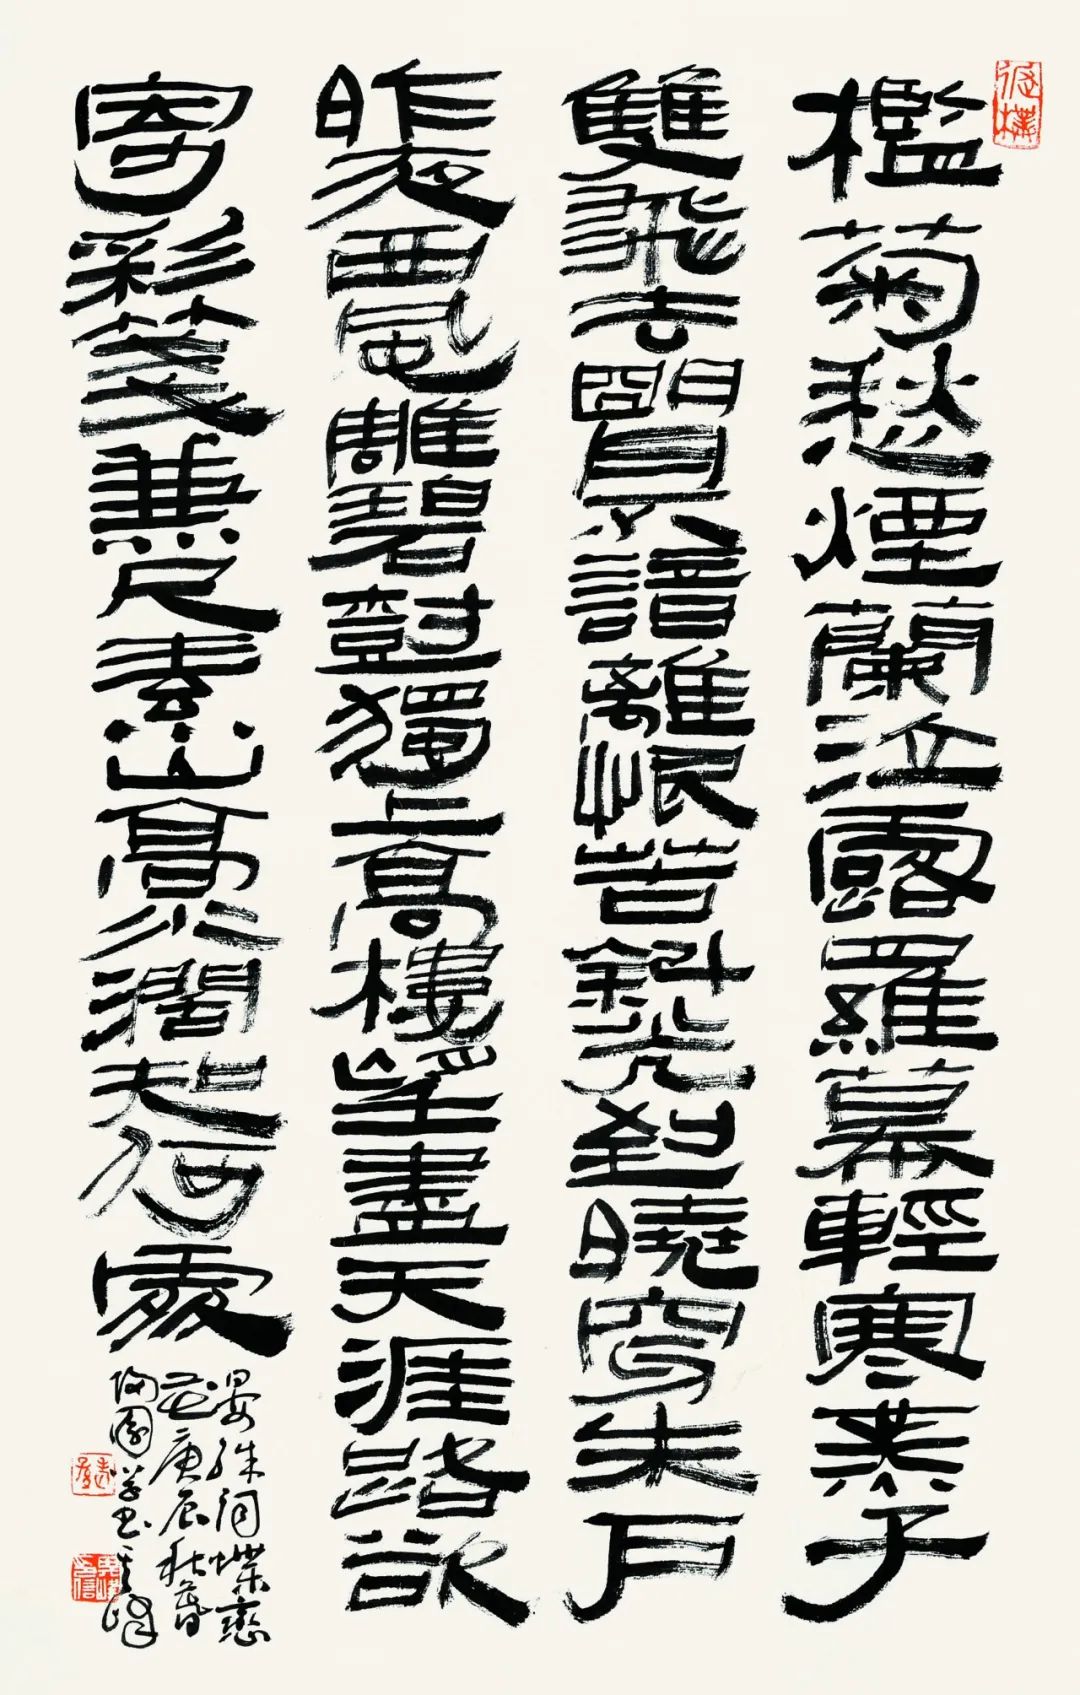 檻菊愁煙蘭泣露羅幕輕寒燕子
雙飛去明月不諳離恨苦斜光到曉穿朱戶
昨夜西風雕碧樹獨上高樓望盡天涯路欲
寄彩箋兼尺素山高水濶知何處
晏殊詞蝶戀
花庚辰秋暮
園学書其峰